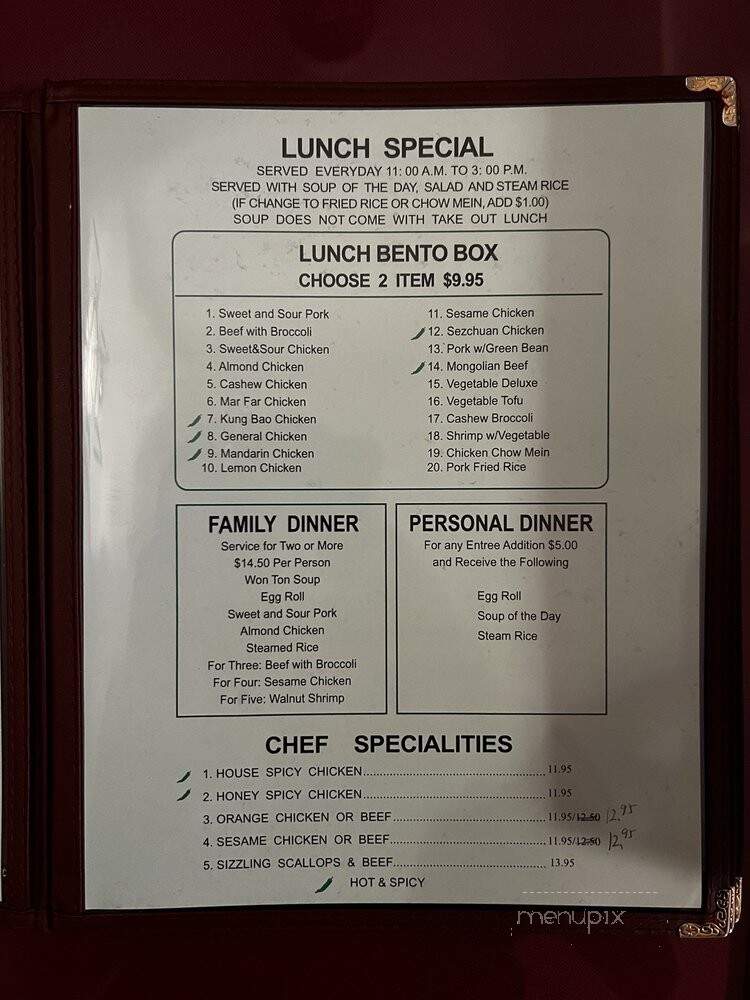 LUNCH SPECIAL
SERVED EVERYDAY 11: 00 A.M. TO 3: 00 P.M.
SERVED WITH SOUP OF THE DAY, SALAD AND STEAM RICE
(IF CHANGE TO FRIED RICE OR CHOW MEIN, ADD $1.00)
SOUP DOES NOT COME WITH TAKE OUT LUNCH
LUNCH BENTO BOX
CHOOSE 2 ITEM $9.95
1. Sweet and Sour Pork
2. Beef with Broccoli
3. Sweet&Sour Chicken
4. Almond Chicken
5. Cashew Chicken
6. Mar Far Chicken
7. Kung Bao Chicken
8. General Chicken
9. Mandarin Chicken
10. Lemon Chicken
11. Sesame Chicken
12. Sezchuan Chicken
13. Pork w/Green Bean
14. Mongolian Beef
15. Vegetable Deluxe
16. Vegetable Tofu
17. Cashew Broccoli
18. Shrimp w/Vegetable
19. Chicken Chow Mein
20. Pork Fried Rice
FAMILY DINNER
Service for Two or More
$14.50 Per Person
Won Ton Soup
Egg Roll
Sweet and Sour Pork
Almond Chicken
Steamed Rice
For Three: Beef with Broccoli
For Four: Sesame Chicken
For Five: Walnut Shrimp
PERSONAL DINNER
For any Entree Addition $5.00
and Receive the Following
Egg Roll
Soup of the Day
Steam Rice
CHEF SPECIALITIES
1. HOUSE SPICY CHICKEN.................................................11.95
2. HONEY SPICY CHICKEN.................................................11.95
3. ORANGE CHICKEN OR BEEF.........................................11.95/12.50 12.95
4. SESAME CHICKEN OR BEEF..........................................11.95/12.50 12.95
5. SIZZLING SCALLOPS & BEEF......................................... 13.95
HOT & SPICY
menupix